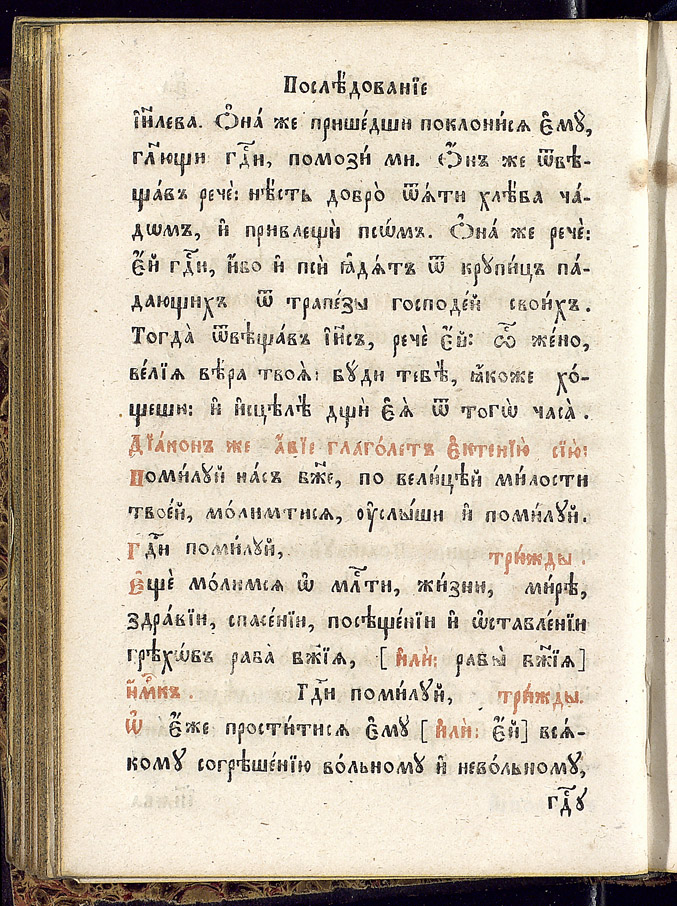 Послѣ́дованїе
і҆и҃лева. Ѻ҆на́ же прише́дши поклони́сѧ є҆мꙋ̀,
гл҃ющи гдⷭ҇и, помози́ ми. Ѻ҆́нъ же ѿвѣ-
ща́въ речѐ: нѣ́сть добро̀ ѿѧ́ти хлѣ́ба ча́-
дѡмъ, и҆ привлещѝ псѡ́мъ. Ѻ҆на́ же речѐ:
є҆́й гдⷭ҇и, и҆́бо и҆ псѝ ꙗ҆дѧ́тъ ѿ крꙋпи́цъ па́-
дающихъ ѿ трапе́зы господе́й свои́хъ.
Тогда̀ ѿвѣща́въ і҆и҃съ, речѐ є҆́й: ѽ же́но,
ве́лїѧ вѣ́ра твоѧ̀: бꙋ́ди тебѣ̀, ꙗ҆́коже хо́-
щеши: и҆ и҆сцѣлѣ̀ дщѝ є҆ѧ̀ ѿ тогѡ̀ часа̀.
Дїа́конъ же а҆́бїе глаго́летъ є҆ктенїю̀ сїю̀:
Поми́лꙋй на́съ бж҃е, по вели́цѣй ми́лости
твое́й, мо́лимтисѧ, ᲂу҆слы́ши и҆ поми́лꙋй.
Гдⷭ҇и поми́лꙋй, три́жды.
Є҆щѐ мо́лимсѧ ѡ҆ млⷭ҇ти, жи́зни, ми́рѣ,
здра́вїи, спасе́нїи, посѣще́нїи и҆ ѡ҆ставле́нїи
грѣхѡ́въ раба̀ бж҃їѧ, [ и҆лѝ: рабы̀ бж҃їѧ ]
и҆́м҃къ. Гдⷭ҇и поми́лꙋй, три́жды.
Ѡ҆ є҆́же прости́тисѧ є҆мꙋ̀ [ и҆лѝ: є҆́й ] всѧ́-
комꙋ согрѣше́нїю во́льномꙋ и҆ нево́льномꙋ,
гдⷭ҇ꙋ